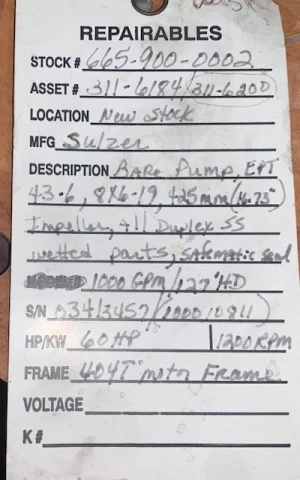 REPAIRABLES
STOCK # 665-900-0002
ASSET # 311-6184/311-6200
LOCATION New Stock
MFG Sulzer
DESCRIPTION Bare Pump, EPT
43-6, 8X6-19, 425mm (16.73"
Impeller, All Duplex SS
wetted parts, Safematic Seal
1000 GPM/127' HD
S/N 03413457/(100010811)
HP/KW 60 HP 1200 RPM
FRAME 404T" motor Frame
VOLTAGE
K #